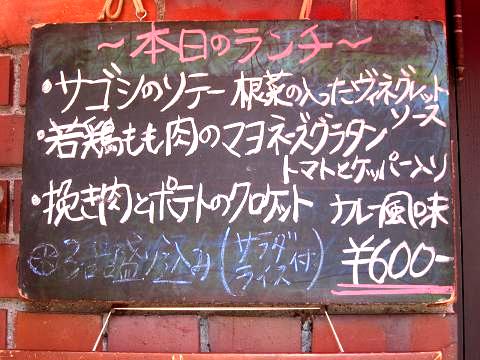 ～本日のランチ～
・サゴシのソテー 根菜の入ったヴィネグレット
ソース
・若鶏もも肉のマヨネーズグラタン
トマトとケッパー入り
・挽き肉とポテトのクロケット カレー風味
盛り込み(サラダ
ライス付)
¥600-